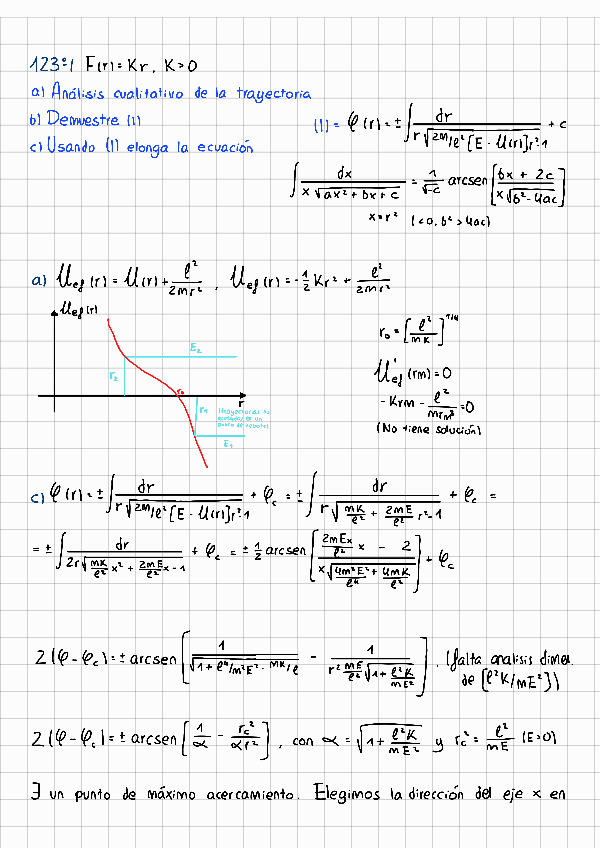 123:1 F(r) = Kr, K > 0
a) Análisis cualitativo de la trayectoria
b) Demuestre (1)
c) Usando (1) elonga la ecuación
(1) = φ(r) = ± ∫ dr / r√(2m/ℓ² [E - U(r)]r² - 1) + c
∫ dx / x√(ax² + bx + c) = 1/√-c arcsen [bx + 2c / x√(b² - 4ac)]
x = r² (c<0, b² > 4ac)
a) U_ef (r) = U(r) + ℓ²/2mr² , U_ef (r) = -1/2 Kr² + ℓ²/2mr²
U_ef (r)
E₂
r₂
r₀
r
r₁
E₁
r₀ = [ℓ²/mK]^1/4
U'_ef (rm) = 0
- Krm - ℓ²/mrm³ = 0
(No tiene solución)
c) φ(r) = ± ∫ dr / r√(2m/ℓ² [E - U(r)]r² - 1) + φc = ± ∫ dr / r√(mK/ℓ² + 2mE/ℓ² r² - 1) + φc =
= ± ∫ dr / 2r√(mK/ℓ² x² + 2mE/ℓ² x - 1) + φc = ± 1/2 arcsen [2mEx/ℓ² x - 2 / x√(4m²E²/ℓ⁴ + 4mK/ℓ²)] + φc
2(φ - φc) = ± arcsen [1 / √(1 + ℓ⁴/m²E² · mK/ℓ) - 1 / r² mE/ℓ² √(1 + ℓ²K/mE²)] . (falta analisis dimen.
de [ℓ²K/mE²])
2(φ - φc) = ± arcsen [1/α - rc²/αr²] , con α = √(1 + ℓ²K/mE²) y rc² = ℓ²/mE (E>0)
∃ un punto de máximo acercamiento. Elegimos la dirección del eje x en